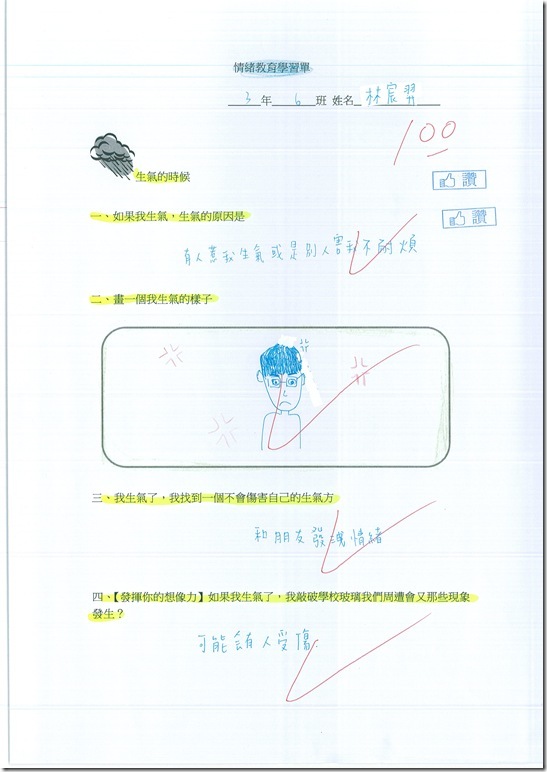 情緒教育學習單
3年6班 姓名 林宸羿
100
生氣的時候
讚
一、如果我生氣，生氣的原因是
讚
有人惹我生氣或是別人害我不耐煩
二、畫一個我生氣的樣子
三、我生氣了，我找到一個不會傷害自己的生氣方
和朋友發洩情緒
四、【發揮你的想像力】如果我生氣了，我敲破學校玻璃我們周遭會又那些現象
發生？
可能會有人受傷.